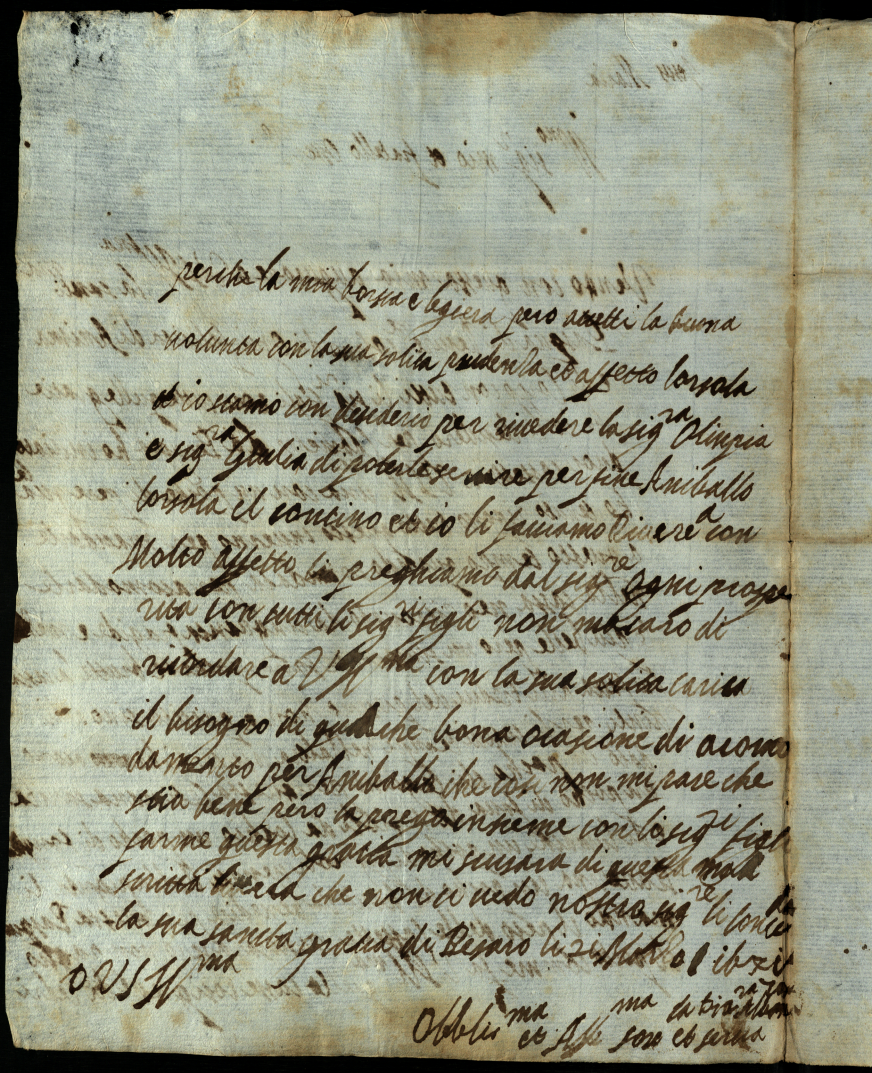 perche la mia borsa e legiera pero accetti la buona
volunta con la sua solita prudentia et affetto lorsola
et io stamo con desiderio per rivedere la sig.ra Olimpia
e sig.ra Giulia di poterle servire per fine Aniballo
lorsola il contino et io li faciamo river.a con
Molto affetto li preghiamo dal sig.re ogni prospe
rita con tutti li sig.ri figli non mancaro di
ricordare a VSSma con la sua solita carita
il bisogno di qualche bona ocasione di acomo
damento per Aniballo che cosi non mi pare che
stia bene pero la prego insieme con li sig.ri figli
farme questa gratia mi scusara di questa mal
scritta che non ci vedo nostro sig.re li conceda
la sua santa gratia di Pesaro li 2
D VSSma
Obblig.ma et Aff.ma soro et serva